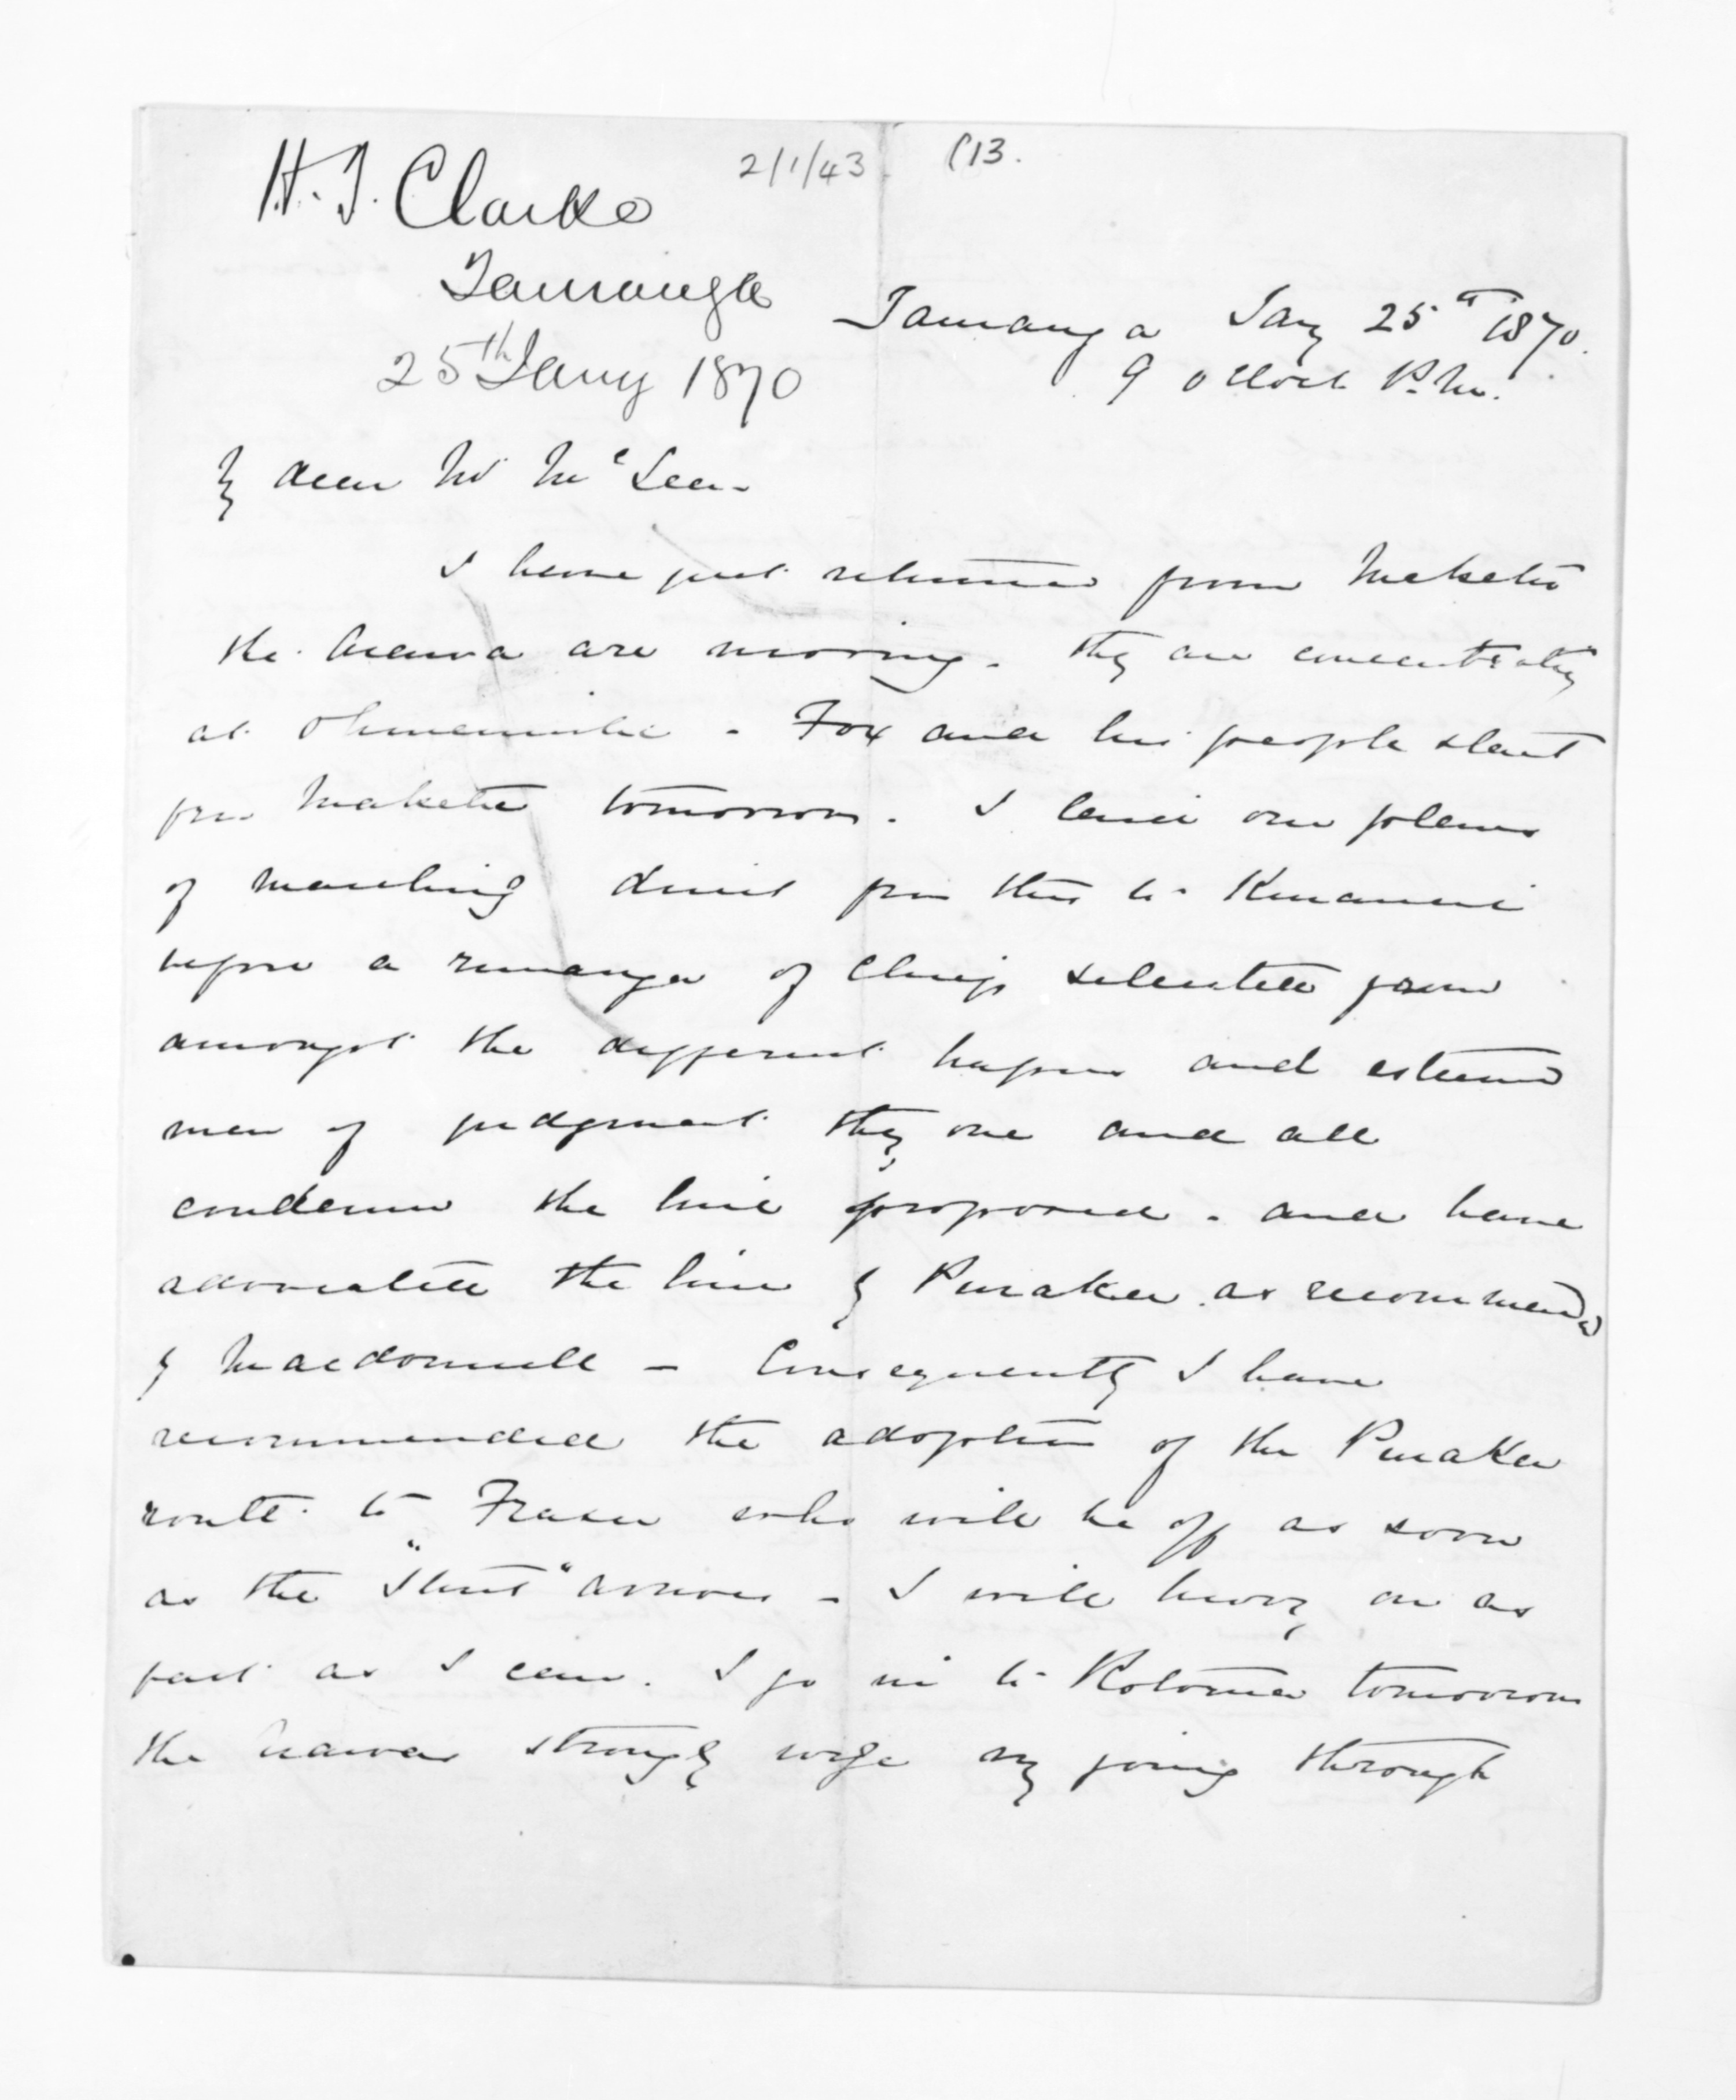 H. T. Clarke
2/1/43
(13.
Tauranga
25th Jany 1870
Tauranga Jany 25th 1870.
9 o'clock P.M.
My dear Mr McLean
I have just returned from Maketu
the Arawa are moving. They are concentrating
at Ohinemutu. Fox and his people start
from Maketu tomorrow. I laid our plans
of marching direct from this to
before a runanga of Chiefs selected from
amongst the different hapus and esteemed
men of judgment they one and all
condemn the line proposed. and have
advocated the line by as recommended
by Macdonnell - Consequently I have
recommended the adoption of the
route to Fraser who will be off as soon
as the "Sturt" arrives - I will hurry on as
fast as I can. I go in to Rotorua tomorrow
the Arawas strongly urge my going through